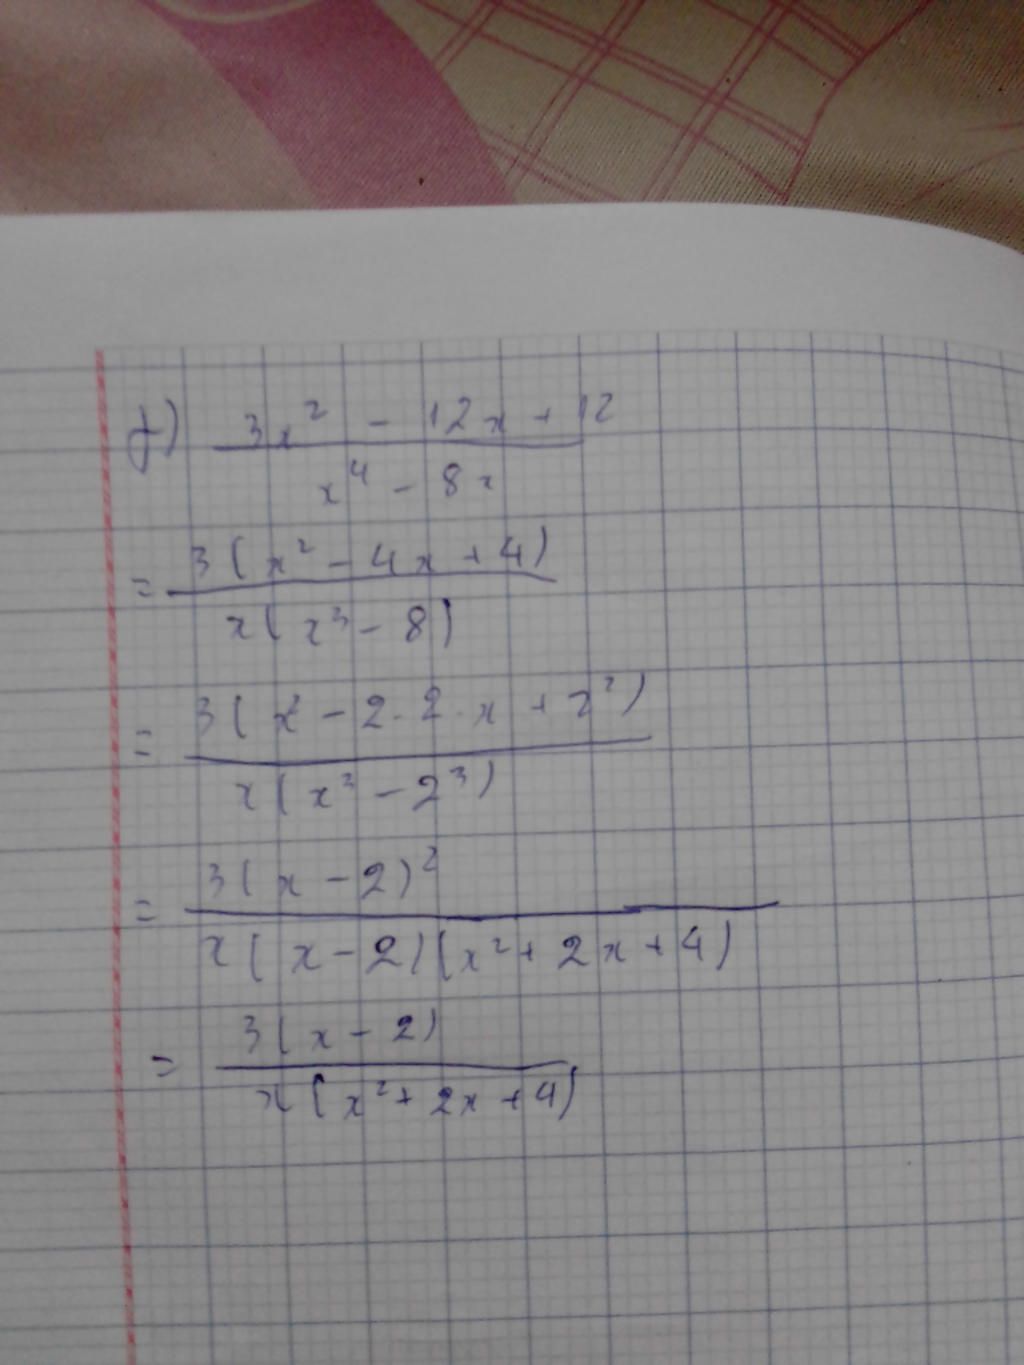 f) 3x² - 12x + 12
x⁴ - 8x
= 3(x² - 4x + 4)
x(x³ - 8)
= 3(x² - 2.2.x + 2²)
x(x³ - 2³)
= 3(x - 2)²
x(x - 2)(x² + 2x + 4)
= 3(x - 2)
x(x² + 2x + 4)